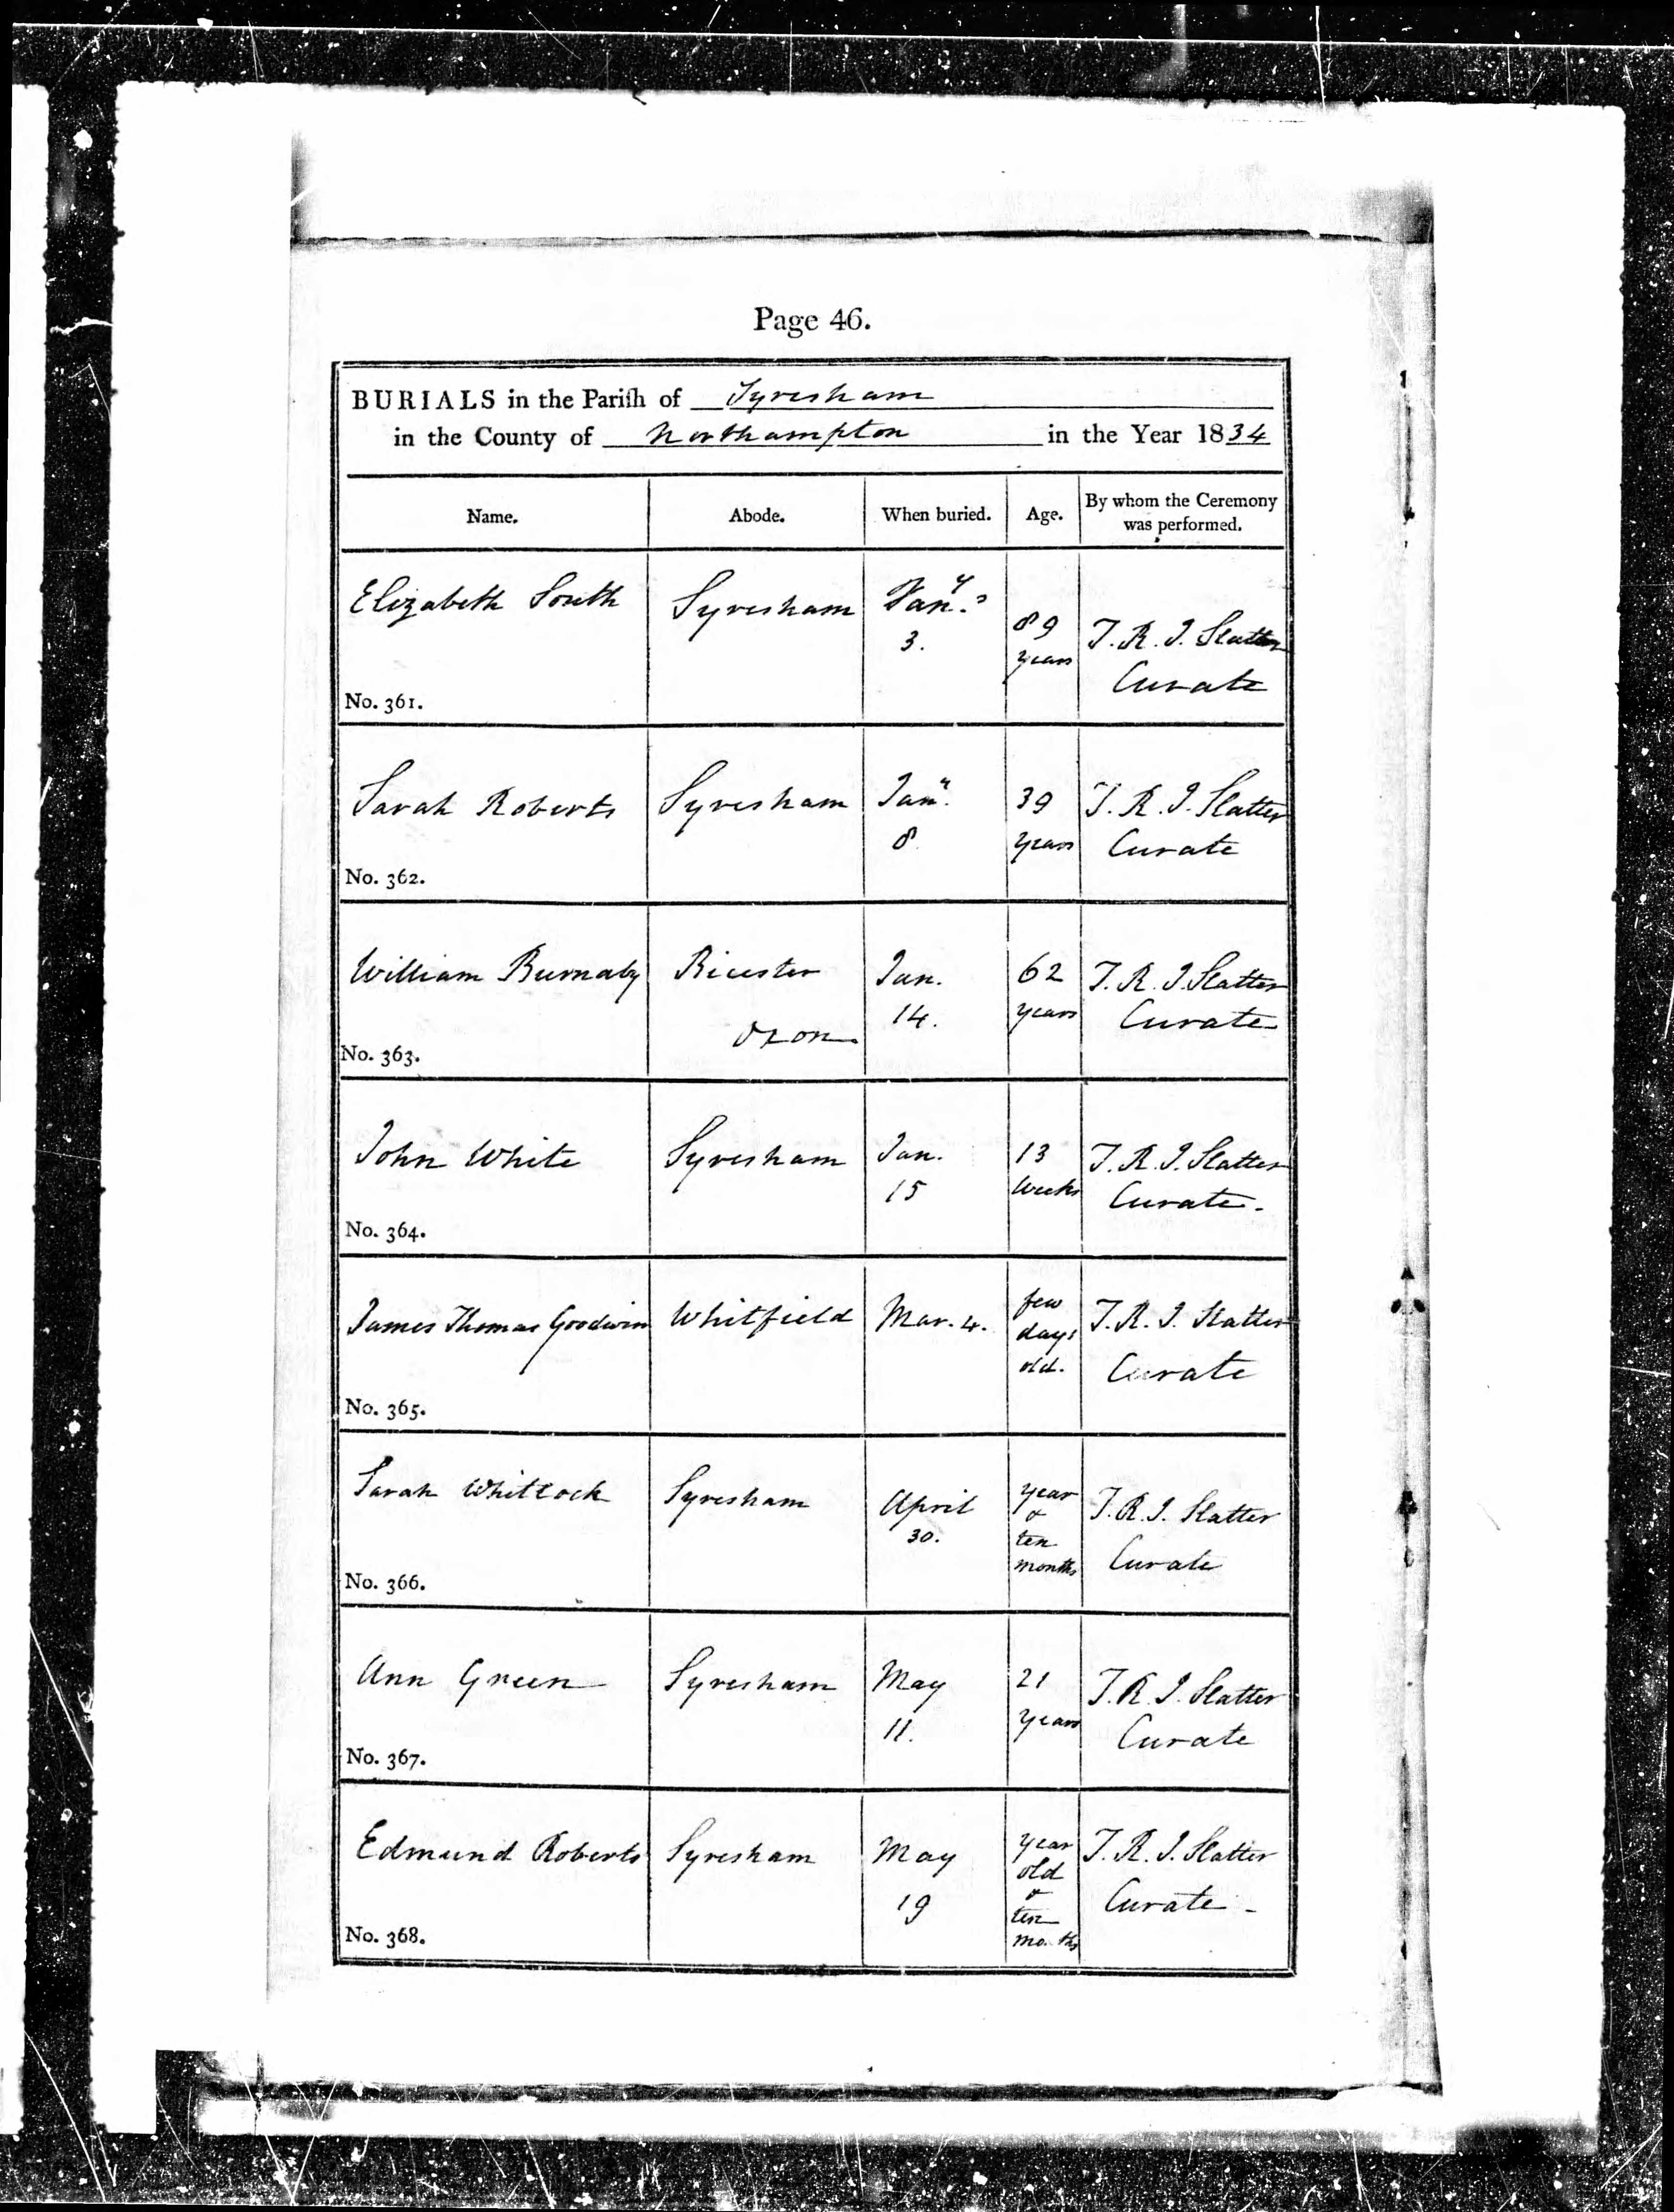 Page 46.
BURIALS in the Pariſh of Syresham
in the County of Northampton in the Year 1834
Name. Abode. When buried. Age. By whom the Ceremony was performed.
Elizabeth South Syresham Jany. 3. 89 years T. R. J. Slatter Curate
No. 361.
Sarah Roberts Syresham Jany. 8 39 years T. R. J. Slatter Curate
No. 362.
William Burnaby Bicester Oxon. Jan. 14. 62 years T. R. J. Slatter Curate
No. 363.
John White Syresham Jan. 15 13 Weeks T. R. J. Slatter Curate.
No. 364.
James Thomas Goodwin Whitfield Mar. 4. few days old. T. R. J. Slatter Curate
No. 365.
Sarah Whitlock Syresham April 30. year & ten months T. R. J. Slatter Curate
No. 366.
Ann Green Syresham May 11. 21 years T. R. J. Slatter Curate
No. 367.
Edmund Roberts Syresham May 19 year old & ten months T. R. J. Slatter Curate -
No. 368.